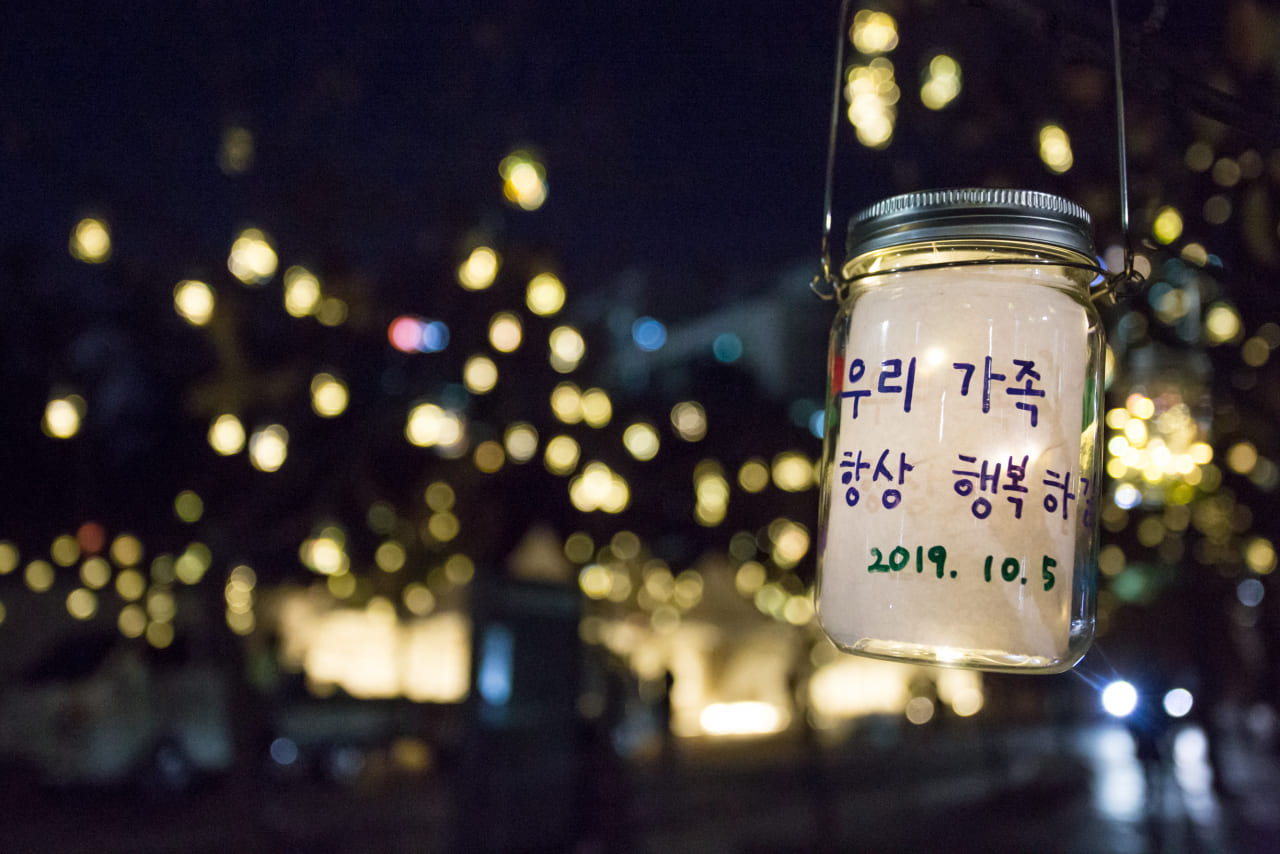 우리 가족
항상 행복하길
2019. 10.5